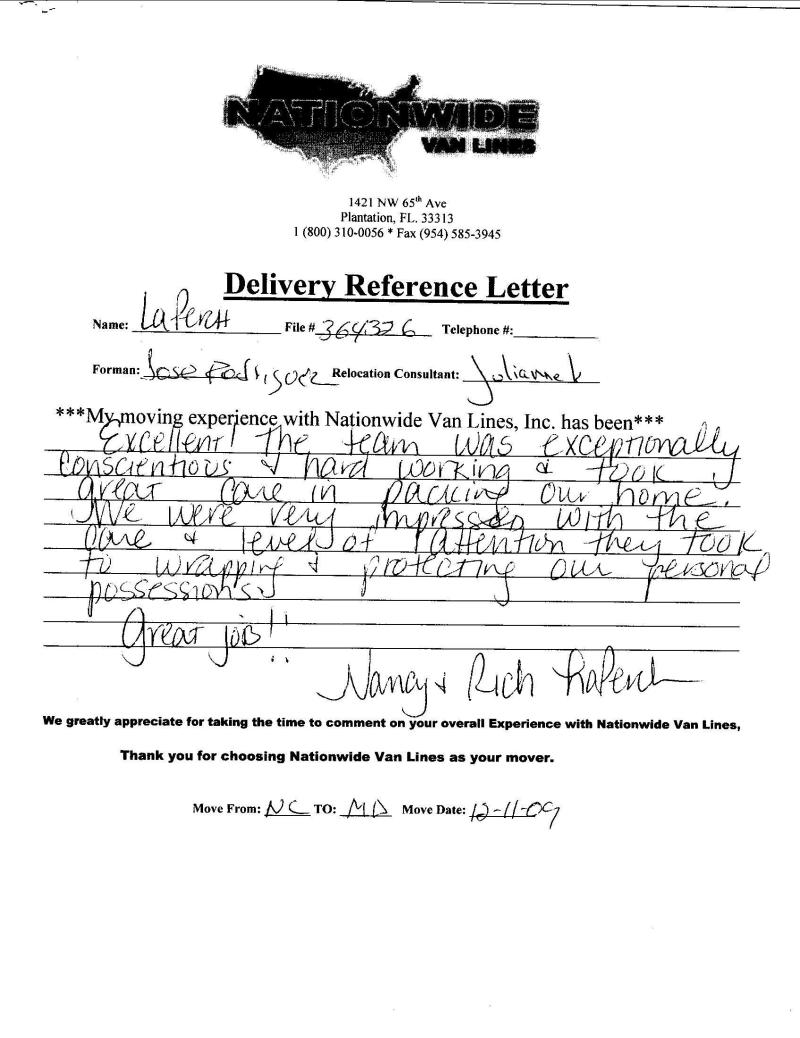 NATIONWIDE
VAN LINES
1421 NW 65th Ave
Plantation, FL. 33313
1 (800) 310-0056 * Fax (954) 585-3945
Delivery Reference Letter
Name: LaPerch File # 364326 Telephone #:
Forman: Jose Rodriguez Relocation Consultant: Julianne L
***My moving experience with Nationwide Van Lines, Inc. has been***
Excellent! The team was exceptionally
conscientious & hard working & took
great care in packing our home.
We were very impressed with the
care & level of attention they took
to wrapping & protecting our personal
possessions.
Great job!!
Nancy & Rich LaPerch
We greatly appreciate for taking the time to comment on your overall Experience with Nationwide Van Lines,
Thank you for choosing Nationwide Van Lines as your mover.
Move From: NC TO: MD Move Date: 12-11-09